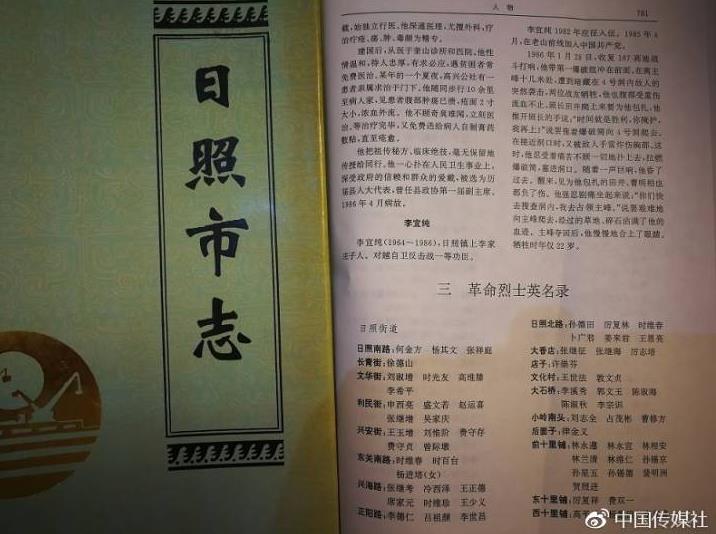 日照市志
人 物
781
截,始独立行医。他深通医理,尤擅外科,疗
治疗疮、疡、肿、毒颇为精专。
建国后,从医于奎山诊所和西院,他性
情温和,待人忠厚,有求必应,遇贫困者常
免费医治。某年的一个夏夜,高兴公社有一
患者亲属求治于门下,他随同步行10余里
至病人家,见患者腹部肿疡已溃,疮面2寸
大小,浓血外流。他不顾奇臭难闻,立刻医
治,等治疗完毕,又免费送给病人自制膏药
数贴,直至痊愈。
他把祖传秘方、临床绝技,毫无保留地
传授给同行。他一心扑在人民卫生事业上,
深受政府的信赖和群众的爱戴,被选为历
届县人大代表,曾任县政协第一届副主席。
1986年4月病故。
李宜纯
李宜纯(1964~1986),日照镇上李家
庄子人。对越自卫反击战一等功臣。
李宜纯1982年应征入伍。1985年4
月,在老山前线加入中国共产党。
1986年1月28日,收复167高地战
斗打响,他带第一爆破组冲在前面,在离主
峰十几米处,遭到暗藏在4号洞内敌人的
突然袭击,两位战友牺牲,他也腹部受重伤
流血不止。班长田丰爬上来要为他包扎,他
推开班长的手说:"时间就是胜利,你掩护,
我再上!"说罢拖着爆破筒向4号洞爬去。
在接近洞口时,又被敌人手雷炸伤胸部。这
时,他忍受着痛苦不顾一切地扑上去,拉燃
爆破筒,塞进洞口。随着一声巨响,他昏了
过去。醒来,见为他包扎的田丰、曹明相也
都负了伤。他强忍剧痛坐起来说:"你们快
去搜查洞内,我去占领主峰。"说罢艰难地
向主峰爬去,经过的草地、碎石沾满了他的
血迹。主峰夺回后,他慢慢地合上了眼睛。
牺牲时年仅22岁。
三 革命烈士英名录
日照街道
日照南路:何金方 杨其文 张祥庭
长青街:徐德山
文华街:刘淑增 时光友 高维勤
李希平
利民街:申西亮 盛文若 赵运喜
张继增 吴家庆
兴安街:王玉增 刘惟阶 费守存
费守贞 曾际墩
东关南路:时维春 时百台
杨进塔(女)
兴海路:张继考 冷西泽 王正德
席家元 时维珍 王少义
正阳路:李德仁 吕祖颜 李世昌
日照北路:孙德田 厉夏林 时维春
卜广君 姜来前 王恩亮
大香店:张继征 张继海 厉志培
店子:许崇芬
文化村:王世法 敦文贞
大石桥:李溪秀 郭文玉 陈淑海
陈淑秋 李宗训
小岭南头:刘志全 占茂彬 曹修方
后团子:律金义
前十里铺:林永遵 林永宣 林相安
林兰清 林德仁 孙锡京
孙星五 孙锡德 裴明洲
贺照进
东十里铺:厉复祥 费双一
西十里铺:高
中国传媒社